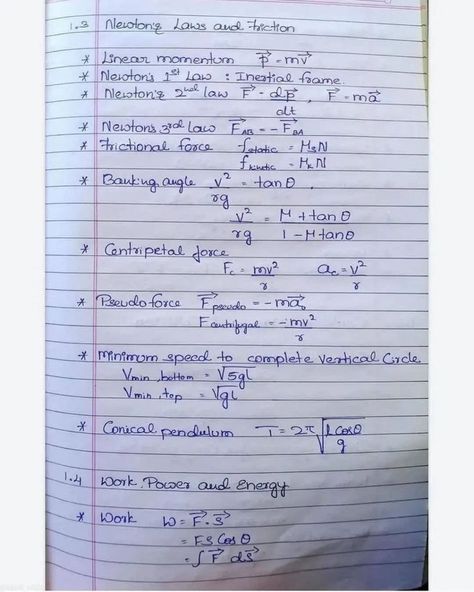 1.3 Newton's Laws and Friction
* Linear momentum p⃗ = mv⃗
* Newton's 1st Law : Inertial frame.
* Newton's 2nd law F⃗ = dp⃗/dt , F⃗ = ma⃗
* Newton's 3rd law F⃗AB = - F⃗BA
* Frictional force fstatic = μsN
fkinetic = μkN
* Banking angle v²/rg = tanθ.
v²/rg = μ + tanθ / 1 - μ tanθ
* Centripetal force
Fc = mv²/r ac = v²/r
* Pseudo force F⃗pseudo = - ma⃗₀
Fcentrifugal = -mv²/r
* Minimum speed to complete vertical Circle.
Vmin, bottom = √5gl
Vmin, top = √gl
* Conical pendulum T = 2π √(l cosθ/g)
1.4 Work, Power and Energy
* Work W = F⃗. S⃗
= FS Cos θ
= ∫ F⃗ dS⃗